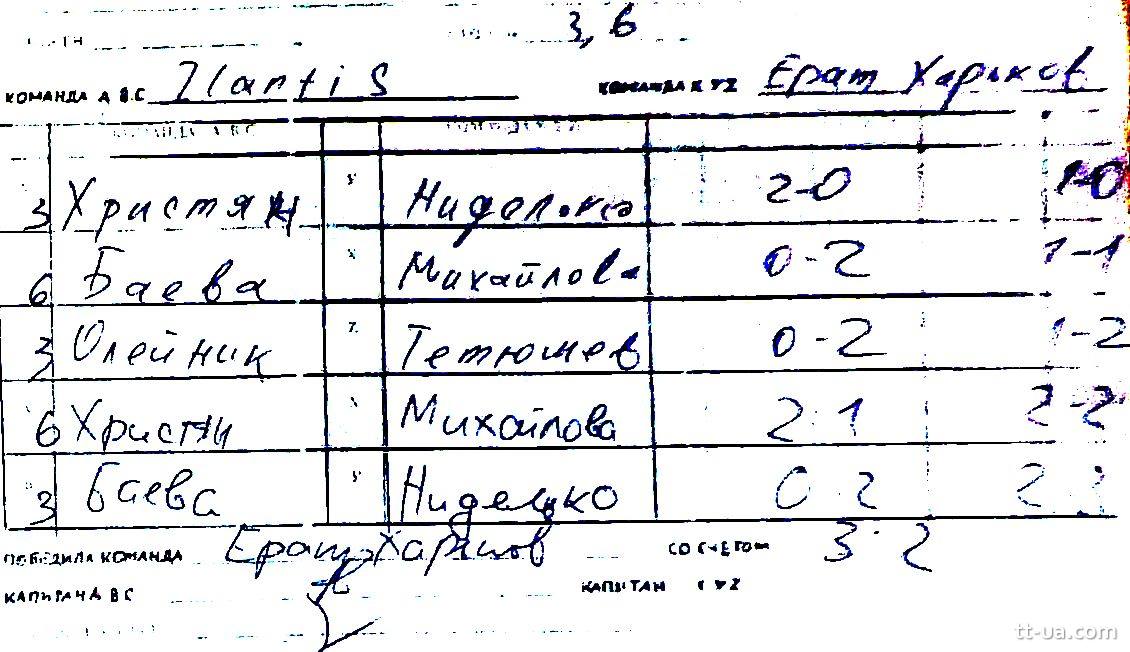 3, 6
КОМАНДА А В.С Ilantis КОМАНДА Х У Z Ерат Харьков
КОМАНДА А В С
3 Христян У 2-0 1-0
6 Баева Х Михайлова 0-2 1-1
3 Олейник Z Тетюшев 0-2 1-2
6 Христян Х Михайлова 2:1 2-2
3 Баева У Ниделько 0:2 2:3
ПОБЕДИЛА КОМАНДА Ерат Харьков СО СЧЕТОМ 3:2
КАПИТАН А В С КАПИТАН Х У Z
tt-ua.com